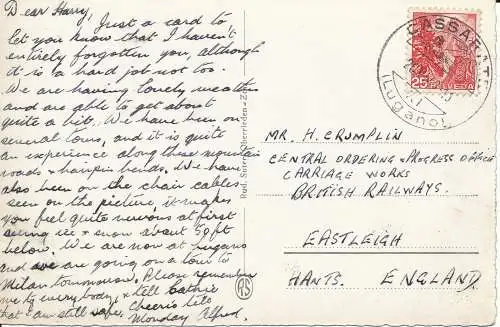 Dear Harry,
Just a card to
let you know that I haven't
entirely forgotten you, although
it is a hard job not too.
We are having lovely weather
and are able to get about
quite a bit. We have been on
several tours, and it is quite
an experience along these mountain
roads & hairpin bends. We have
also been on the chair cables
seen on the picture, it makes
you feel quite nervous at first
seeing ice & snow about 50ft
below. We are now at Lugano
and are going on a tour to
Milan tommorow. Please remember
me to every body, & tell Cathie
that I am still safe. Cheerio till
Monday Alfred.
Rud. Suter, Oberrieden-Zch.
RS
CASSARATE
(Lugano)
HELVETIA
25
MR. H. CRUMPLIN
CENTRAL ORDERING & PROGRESS OFFICE
CARRIAGE WORKS
BRITISH RAILWAYS.
EASTLEIGH
HANTS. ENGLAND